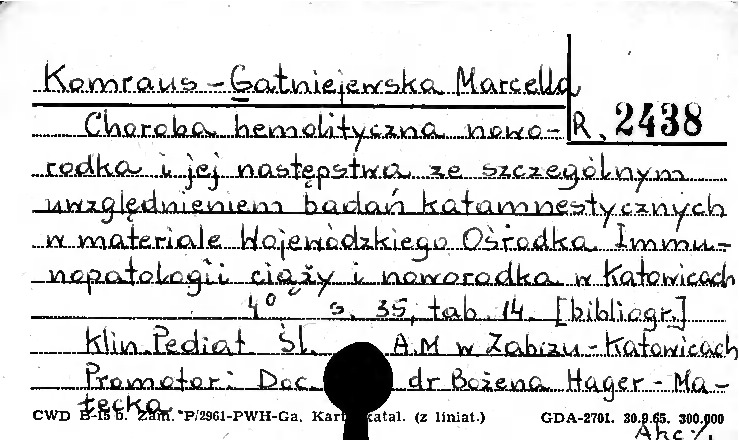 Komraus-Gatniejewska Marcella
Choroba hemolityczna nowo- R. 2438
rodka i jej następstwa ze szczególnym
uwzględnieniem badań katamnestycznych
w materiale Wojewódzkiego Ośrodka Immu-
nopatologii ciąży i noworodka w Katowicach
4° s. 35, tab. 14. [bibliogr.]
Klin. Pediat. Śl. A.M w Zabrzu-Katowicach
Promotor: Doc. dr Bożena Hager-Ma-
łecka.
CWD B-15 b. Zam. P/2961-PWH-Ga. Kart. katal. (z liniat.) GDA-2701. 30.9.65. 300.000